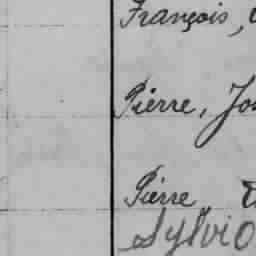 François,
Pierre,
Pierre
Sylvio